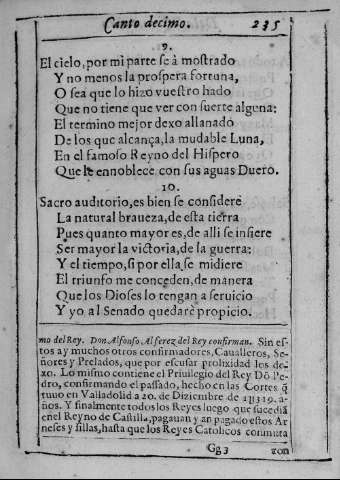 Canto decimo. 235
9.
El cielo, por mi parte se à mostrado
Y no menos la prospera fortuna,
O sea que lo hizo vuestro hado
Que no tiene que ver con suerte alguna:
El termino mejor dexo allanado
De los que alcança, la mudable Luna,
En el famoso Reyno del Hispero
Que le ennoblece con sus aguas Duero.
10.
Sacro auditorio, es bien se considere
La natural braueza, de esta tierra
Pues quanto mayor es, de alli se infiere
Ser mayor la victoria, de la guerra:
Y el tiempo, si por ella se midiere
El triunfo me conceden, de manera
Que los Dioses lo tengan a seruicio
Y yo al Senado quedarè propicio.
mo del Rey. Don Alfonso Alferez del Rey confirman. Sin es-
tos ay muchos otros confirmadores, Caualleros, Se-
ñores y Prelados, que por escusar prolixidad los de-
xo. Lo mismo contiene el Priuilegio del Rey Dõ Pe-
dro, confirmando el passado, hecho en las Cortes q̃
tuuo en Valladolid a 20. de Diziembre de 1319. a-
ños. Y finalmente todos los Reyes luego que sucediã
en el Reyno de Castilla, pagauan y an pagado estos Ar
neses y sillas, hasta que los Reyes Catolicos conmuta
Gg 3 ron